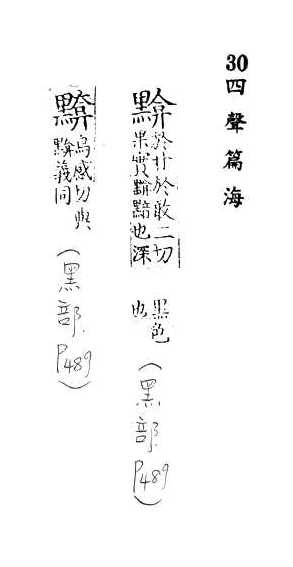 30四聲篇海
黭
於廾於敢二切
果實黭黯也深
黑色
也
(黑部 P489)
烏感切與
黭義同
(黑部. P489)